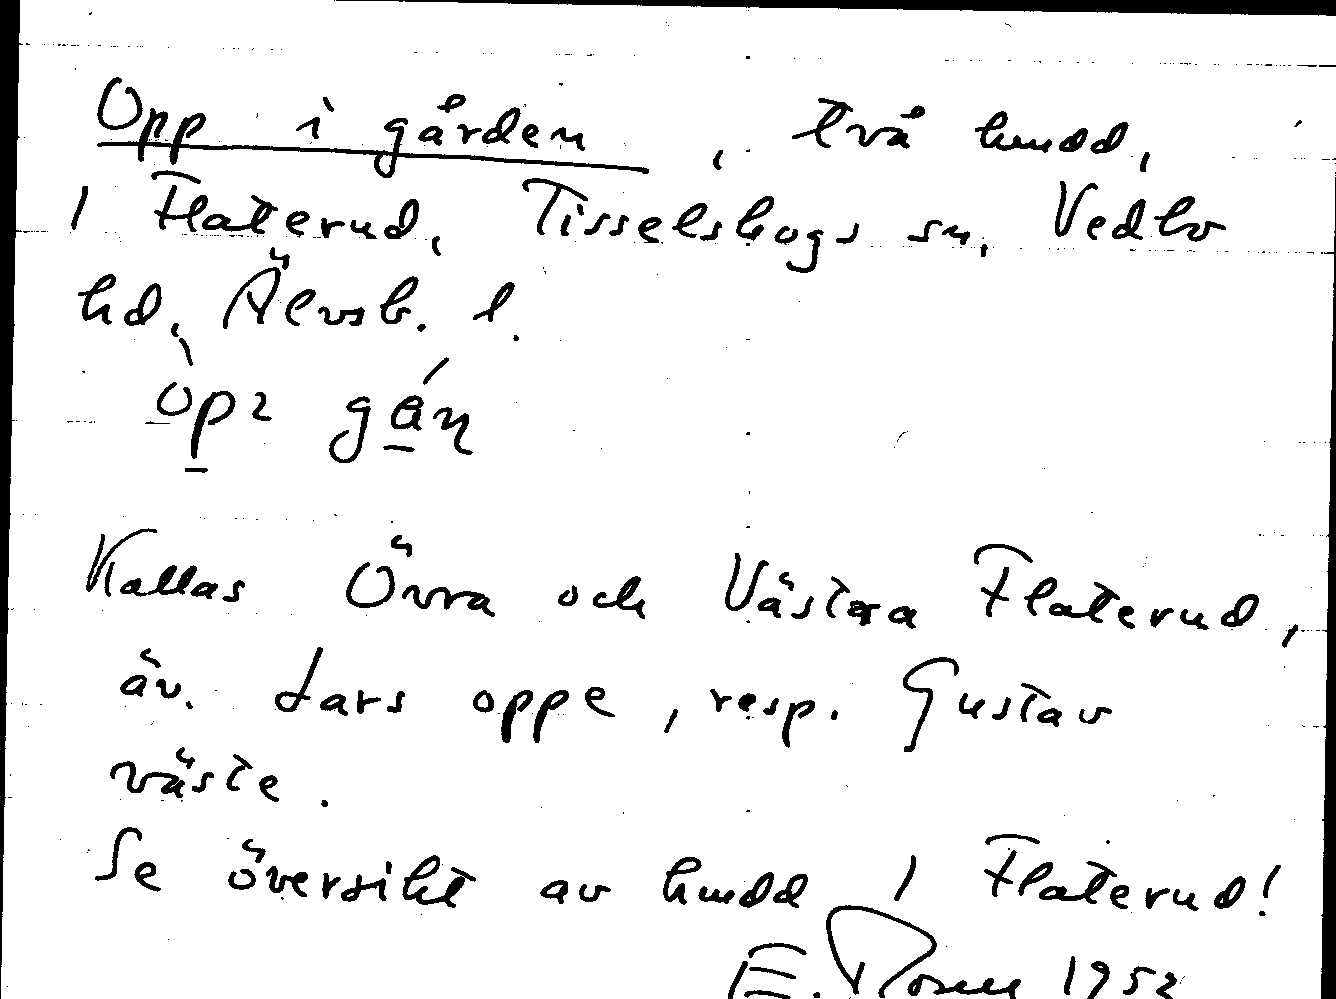 Opp i gården, två hmdd,
1 Flaterud, Tisselskogs sn, Vedbo
hd, Älvsb. l.
Kallas Övra och Västra Flaterud,
äv. Lars oppe, resp. Gustav
väste.
Se översikt av hmdd 1 Flaterud!
E. 1952